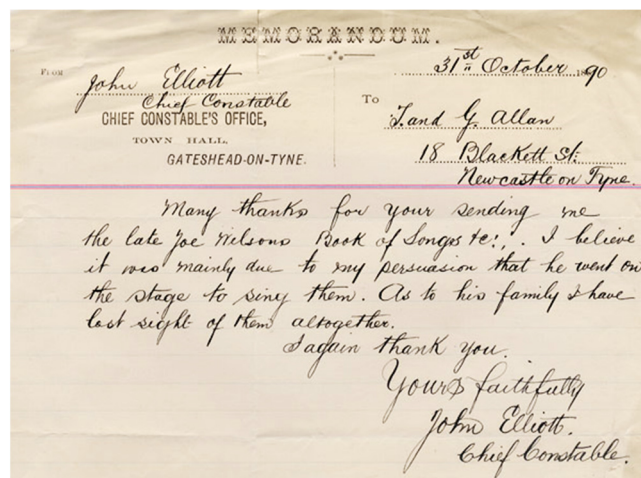 MEMORANDUM.
31st October 1890
FROM John Elliott
Chief Constable
CHIEF CONSTABLE'S OFFICE,
TOWN HALL,
GATESHEAD-ON-TYNE.
To
T. and G. Allan
18 Blackett St.
Newcastle on Tyne.
Many thanks for your sending me
the late Joe Wilsons Book of Songs &c:,. I believe
it was mainly due to my persuasion that he went on
the stage to sing them. As to his family I have
lost sight of them altogether.
I again thank you.
Yours faithfully
John Elliott.
Chief Constable.